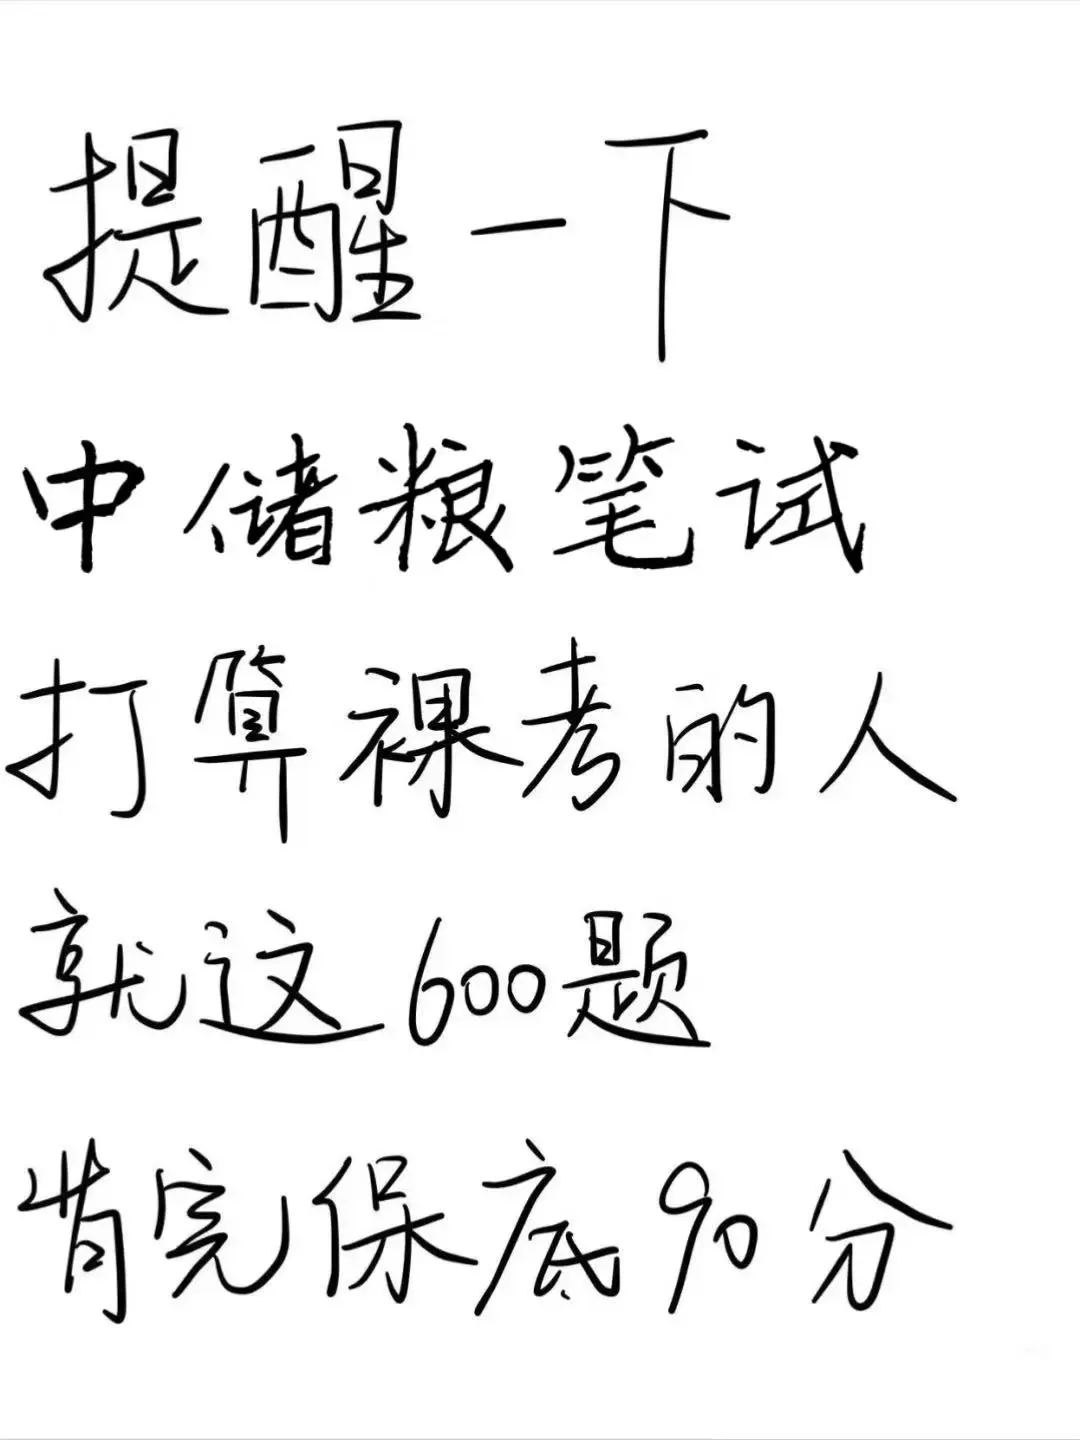 提醒一下
中储粮笔试
打算裸考的人
就这600题
背完保底90分